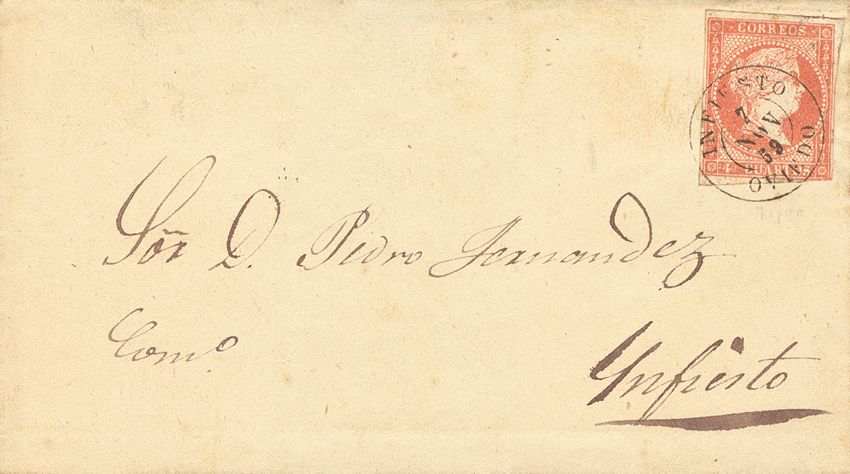 CORREOS
INFIESTO
7
NOV
59
OVIEDO
Sōr D. Pedro Fernandez
Comº
Ynfiesto